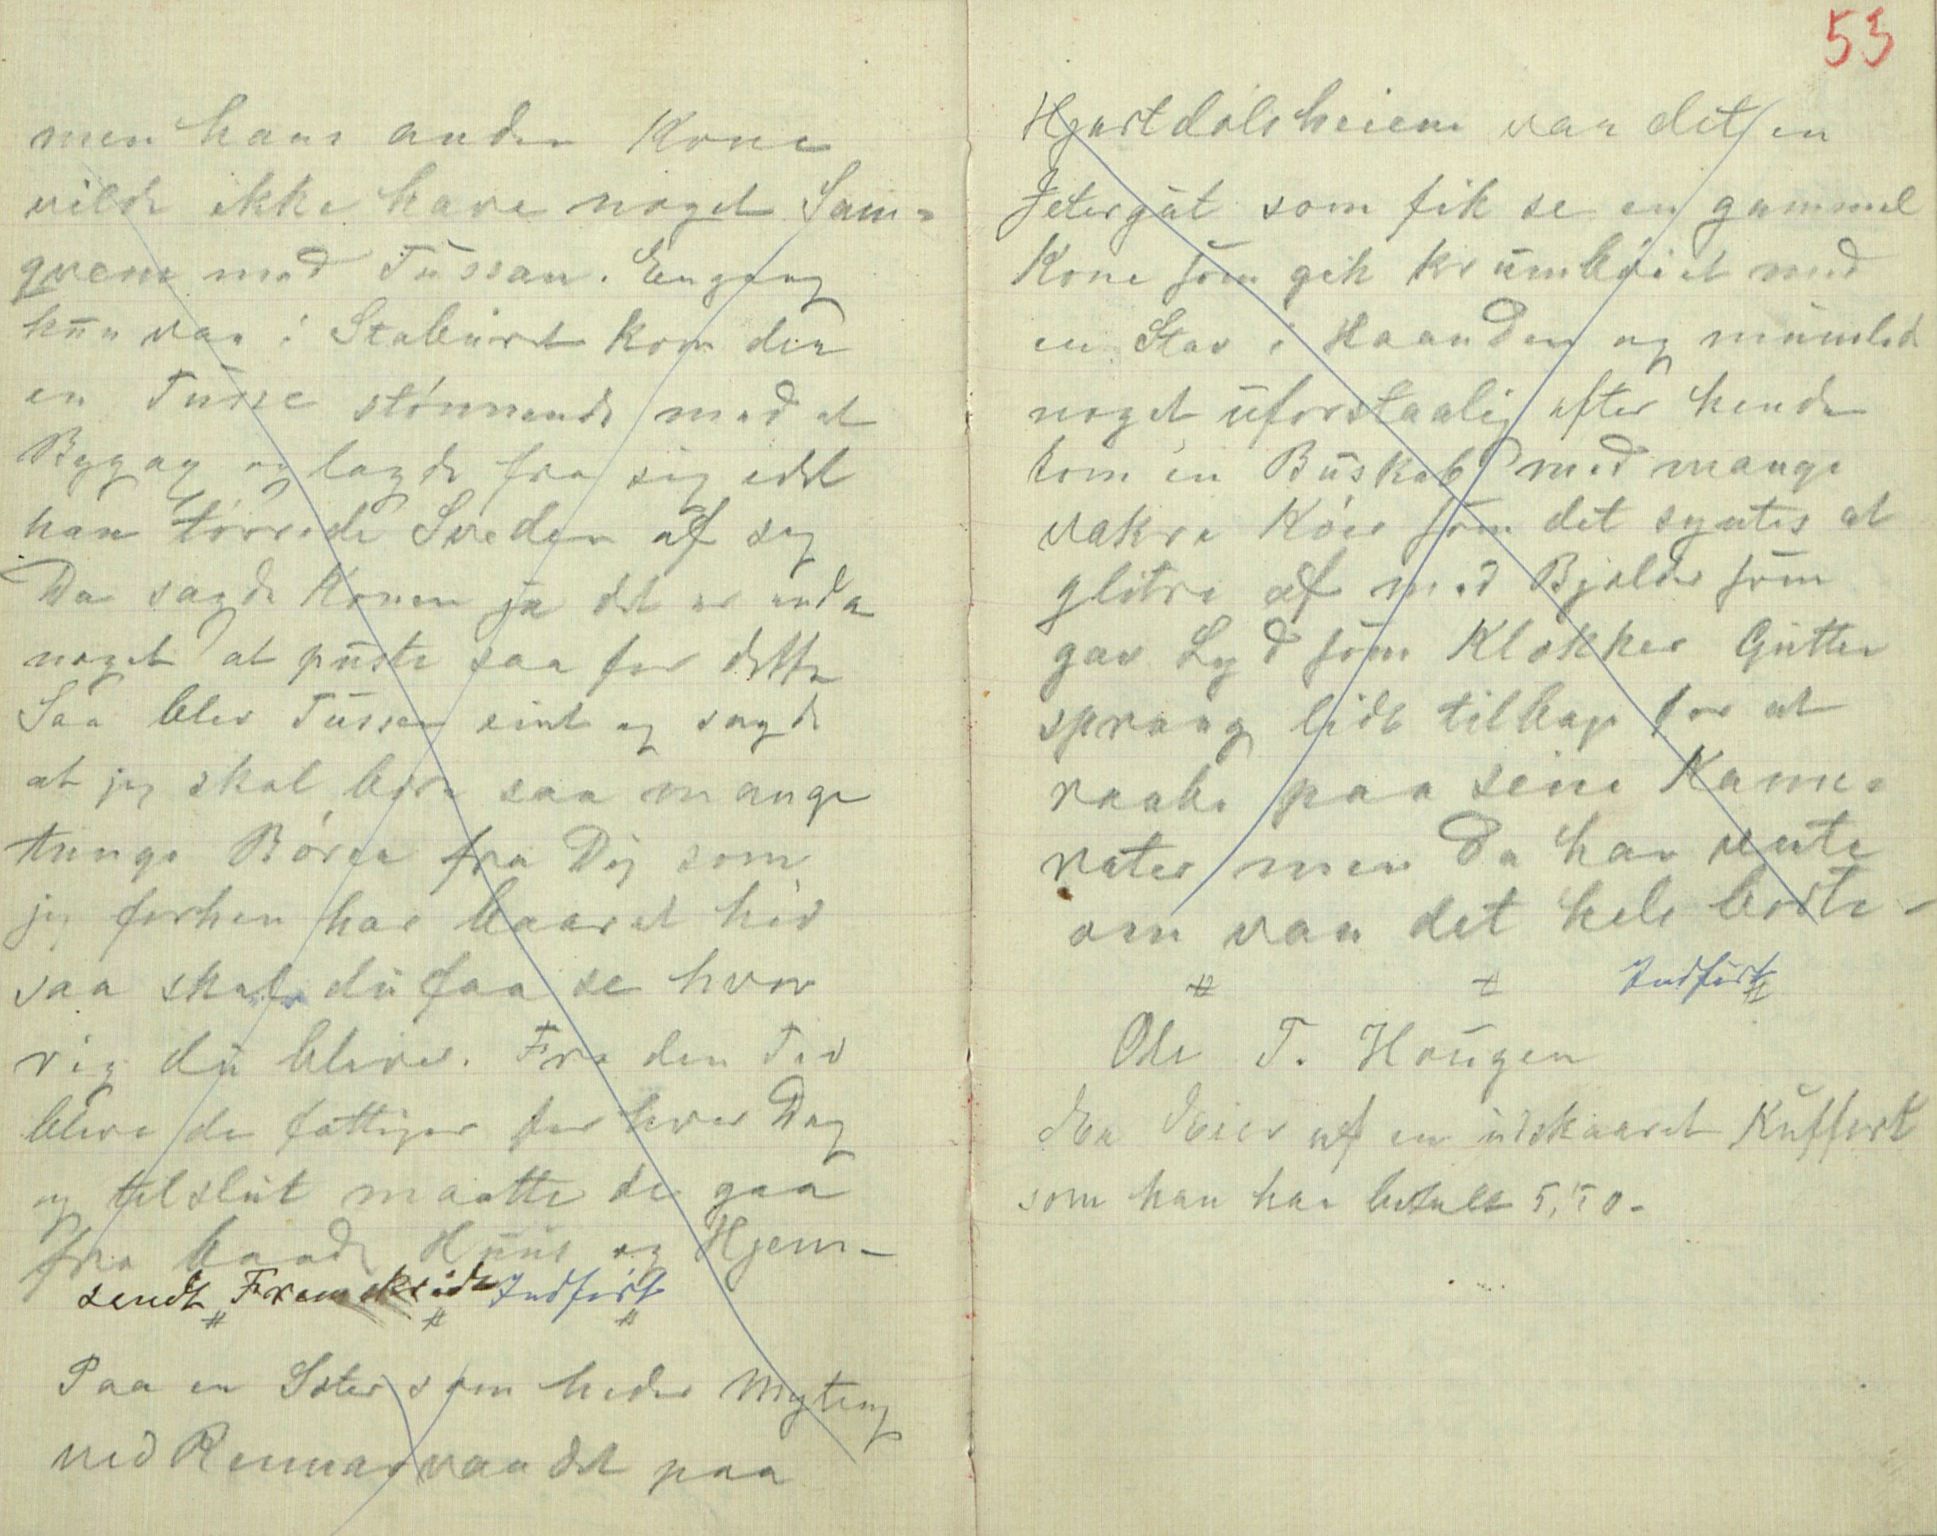 men hans anden Kone
vilde ikke have noget Sam=
qvem med Tussan. Engang
hun var i Staburet kom der
en Tusse stønnende med et
Bygax og lagde fra sig idet
han tørrede Sveden af sig
Da sagde Konen ja det er enda
noget at puste saa for dette
Saa blev Tussen sint og sagde
at jeg skal bere saa mange
tunge Bører fra Dig som
jeg forhen har baaret hid
saa skal du faa se hvor
rig du bliver. Fra den Tid
bleve de fattiger for hver Dag
og tilslut maatte de gaa
fra baade Huus og Hjem –
sendt Framskridt Indført
Paa en Seter som heder Myting
ved Rennar var det paa
53
Hjartdølsheiene var det en
Jetergut som fik se en gammel
Kone som gik krumbøiet med
en Stav i Haanden og mumled
noget uforstaalig efter hende
kom en Buskab med mange
vakre Køer som det syntes at
glitre af med Bjelder som
gav Lyd som Klokker Gutten
sprang lidt tilbage for at
raabe paa seine Kame=
rater men da han vente
om var det hele borte –
Indført
Ole T. Hougen
Er Eier af en udskaaret Kuffert
som han har betalt 5,50 –